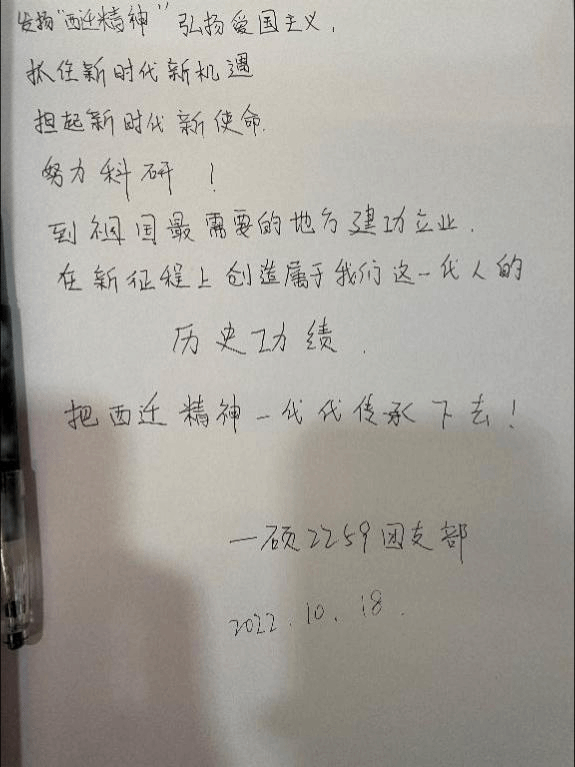 发扬“西迁精神” 弘扬爱国主义，
抓住新时代新机遇
担起新时代新使命.
努力科研！
到祖国最需要的地方建功立业.
在新征程上创造属于我们这一代人的
历史功绩.
把西迁精神一代代传承下去！
一硕2259团支部
2022.10.18.